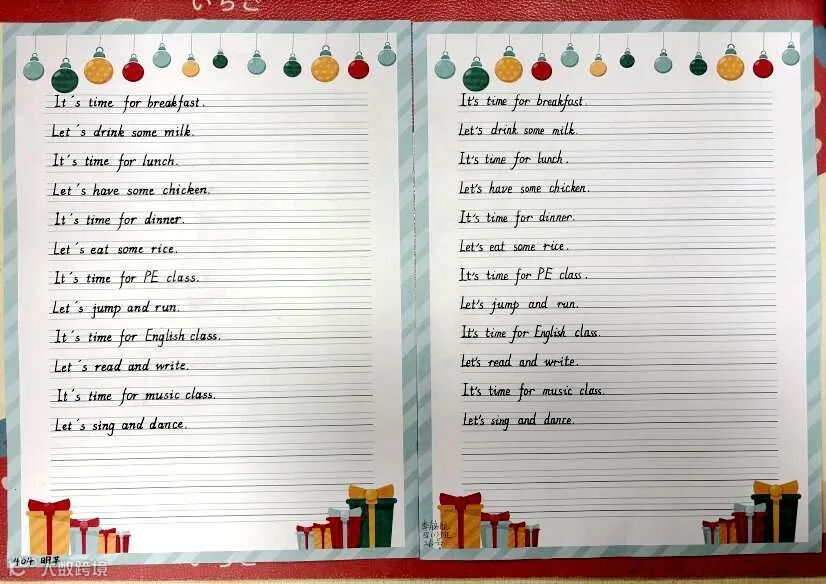 いちご
It's time for breakfast.
Let's drink some milk.
It's time for lunch.
Let's have some chicken.
It's time for dinner.
Let's eat some rice.
It's time for PE class.
Let's jump and run.
It's time for English class.
Let's read and write.
It's time for music class.
Let's sing and dance.
404
It's time for breakfast.
Let's drink some milk.
It's time for lunch.
Let's have some chicken.
It's time for dinner.
Let's eat some rice.
It's time for PE class.
Let's jump and run.
It's time for English class.
Let's read and write.
It's time for music class.
Let's sing and dance.
大数跨境